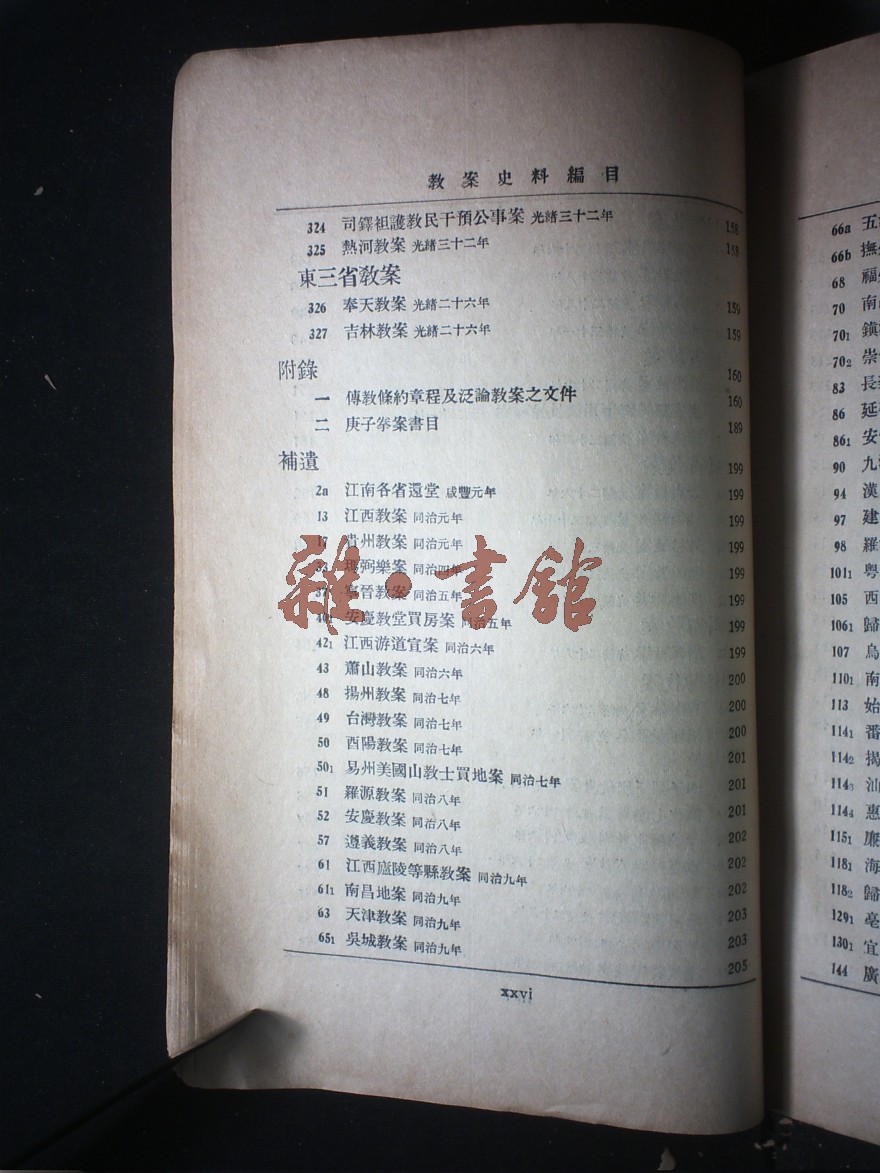 教案史料編目
324 司鐸袒護教民干預公事案 光緒三十二年 158
325 熱河教案 光緒三十二年 158
東三省教案
326 奉天教案 光緒二十六年 159
327 吉林教案 光緒二十六年 159
附錄 160
一 傳教條約章程及泛論教案之文件 160
二 庚子拳案書目 189
補遺 199
2a 江南各省還堂 咸豐元年 199
13 江西教案 同治元年 199
17 貴州教案 同治元年 199
瑪弼樂案 同治四年 199
教案 同治五年 199
安慶教堂買房案 同治五年 199
421 江西游道宣案 同治六年 199
43 蕭山教案 同治六年 200
48 揚州教案 同治七年 200
49 台灣教案 同治七年 200
50 酉陽教案 同治七年 201
501 易州美國山教士買地案 同治七年 201
51 羅源教案 同治八年 201
52 安慶教案 同治八年 202
57 遵義教案 同治八年 202
61 江西廬陵等縣教案 同治九年 202
611 南昌地案 同治九年 203
63 天津教案 同治九年 203
651 吳城教案 同治九年 205
xxvi
雜·書館
66a 五
66b 撫
68 福
70 南
701 鎮
702 崇
83 長
86 延
861 安
90 九
94 漢
97 建
98 羅
1011 粵
105 西
1061 歸
107 烏
1101 南
113 始
1141 番
1142 揭
1143 汕
1144 惠
1151 廉
1181 海
1182 歸
1291 亳
1301 宜
144 廣